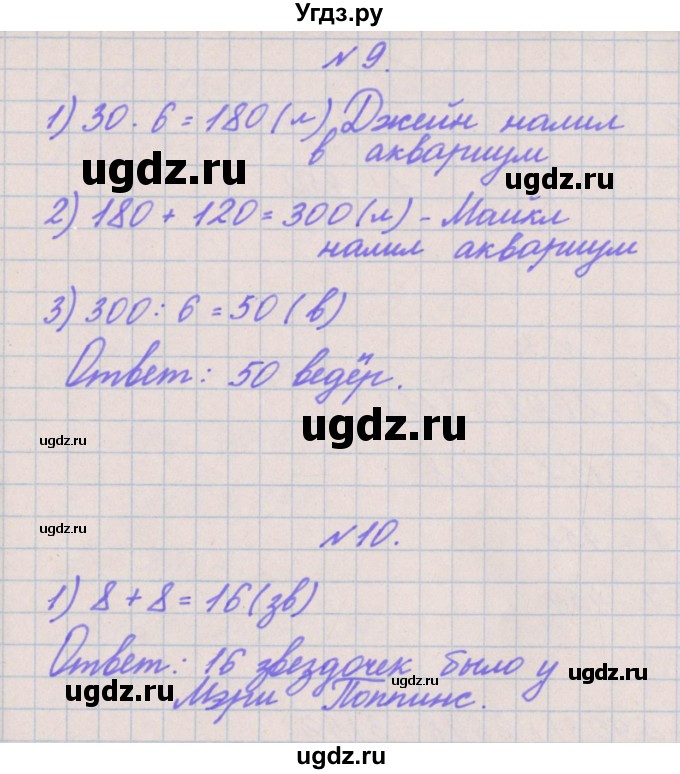 Угдз.ру
№9.
1) 30 · 6 = 180 (л) Джейн налил
в аквариум
ugdz.ru
ugdz.ru
2) 180 + 120 = 300 (л) - Майкл
налил аквариум
3) 300 : 6 = 50 (в)
Ответ: 50 ведёр.
ugdz.ru
ugdz.ru
ugdz.ru
№10.
1) 8 + 8 = 16 (зв)
Ответ: 16 звездочек было у
ugdz.ru
ugdz.ru
ugdz.ru
Мэри Поппинс.
ugdz.ru